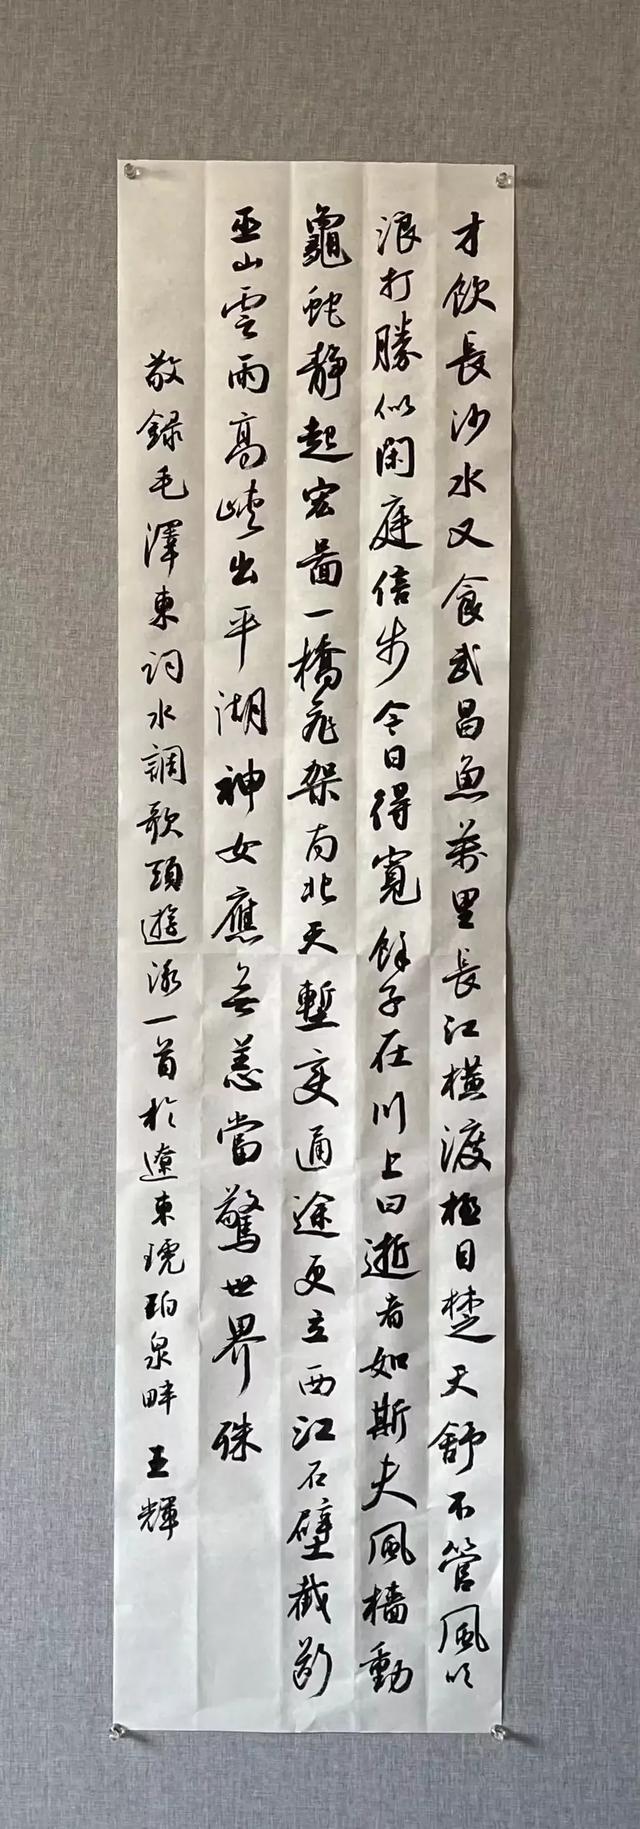 才飲長沙水又食武昌魚萬里長江橫渡極目楚天舒不管風吹
浪打勝似閑庭信步今日得寬餘子在川上曰逝者如斯夫風檣動
龜蛇靜起宏圖一橋飛架南北天塹變通途更立西江石壁截斷
巫山雲雨高峽出平湖神女應無恙當驚世界殊
敬錄毛澤東詞水調歌頭遊泳一首於遼東琥珀泉畔 王輝